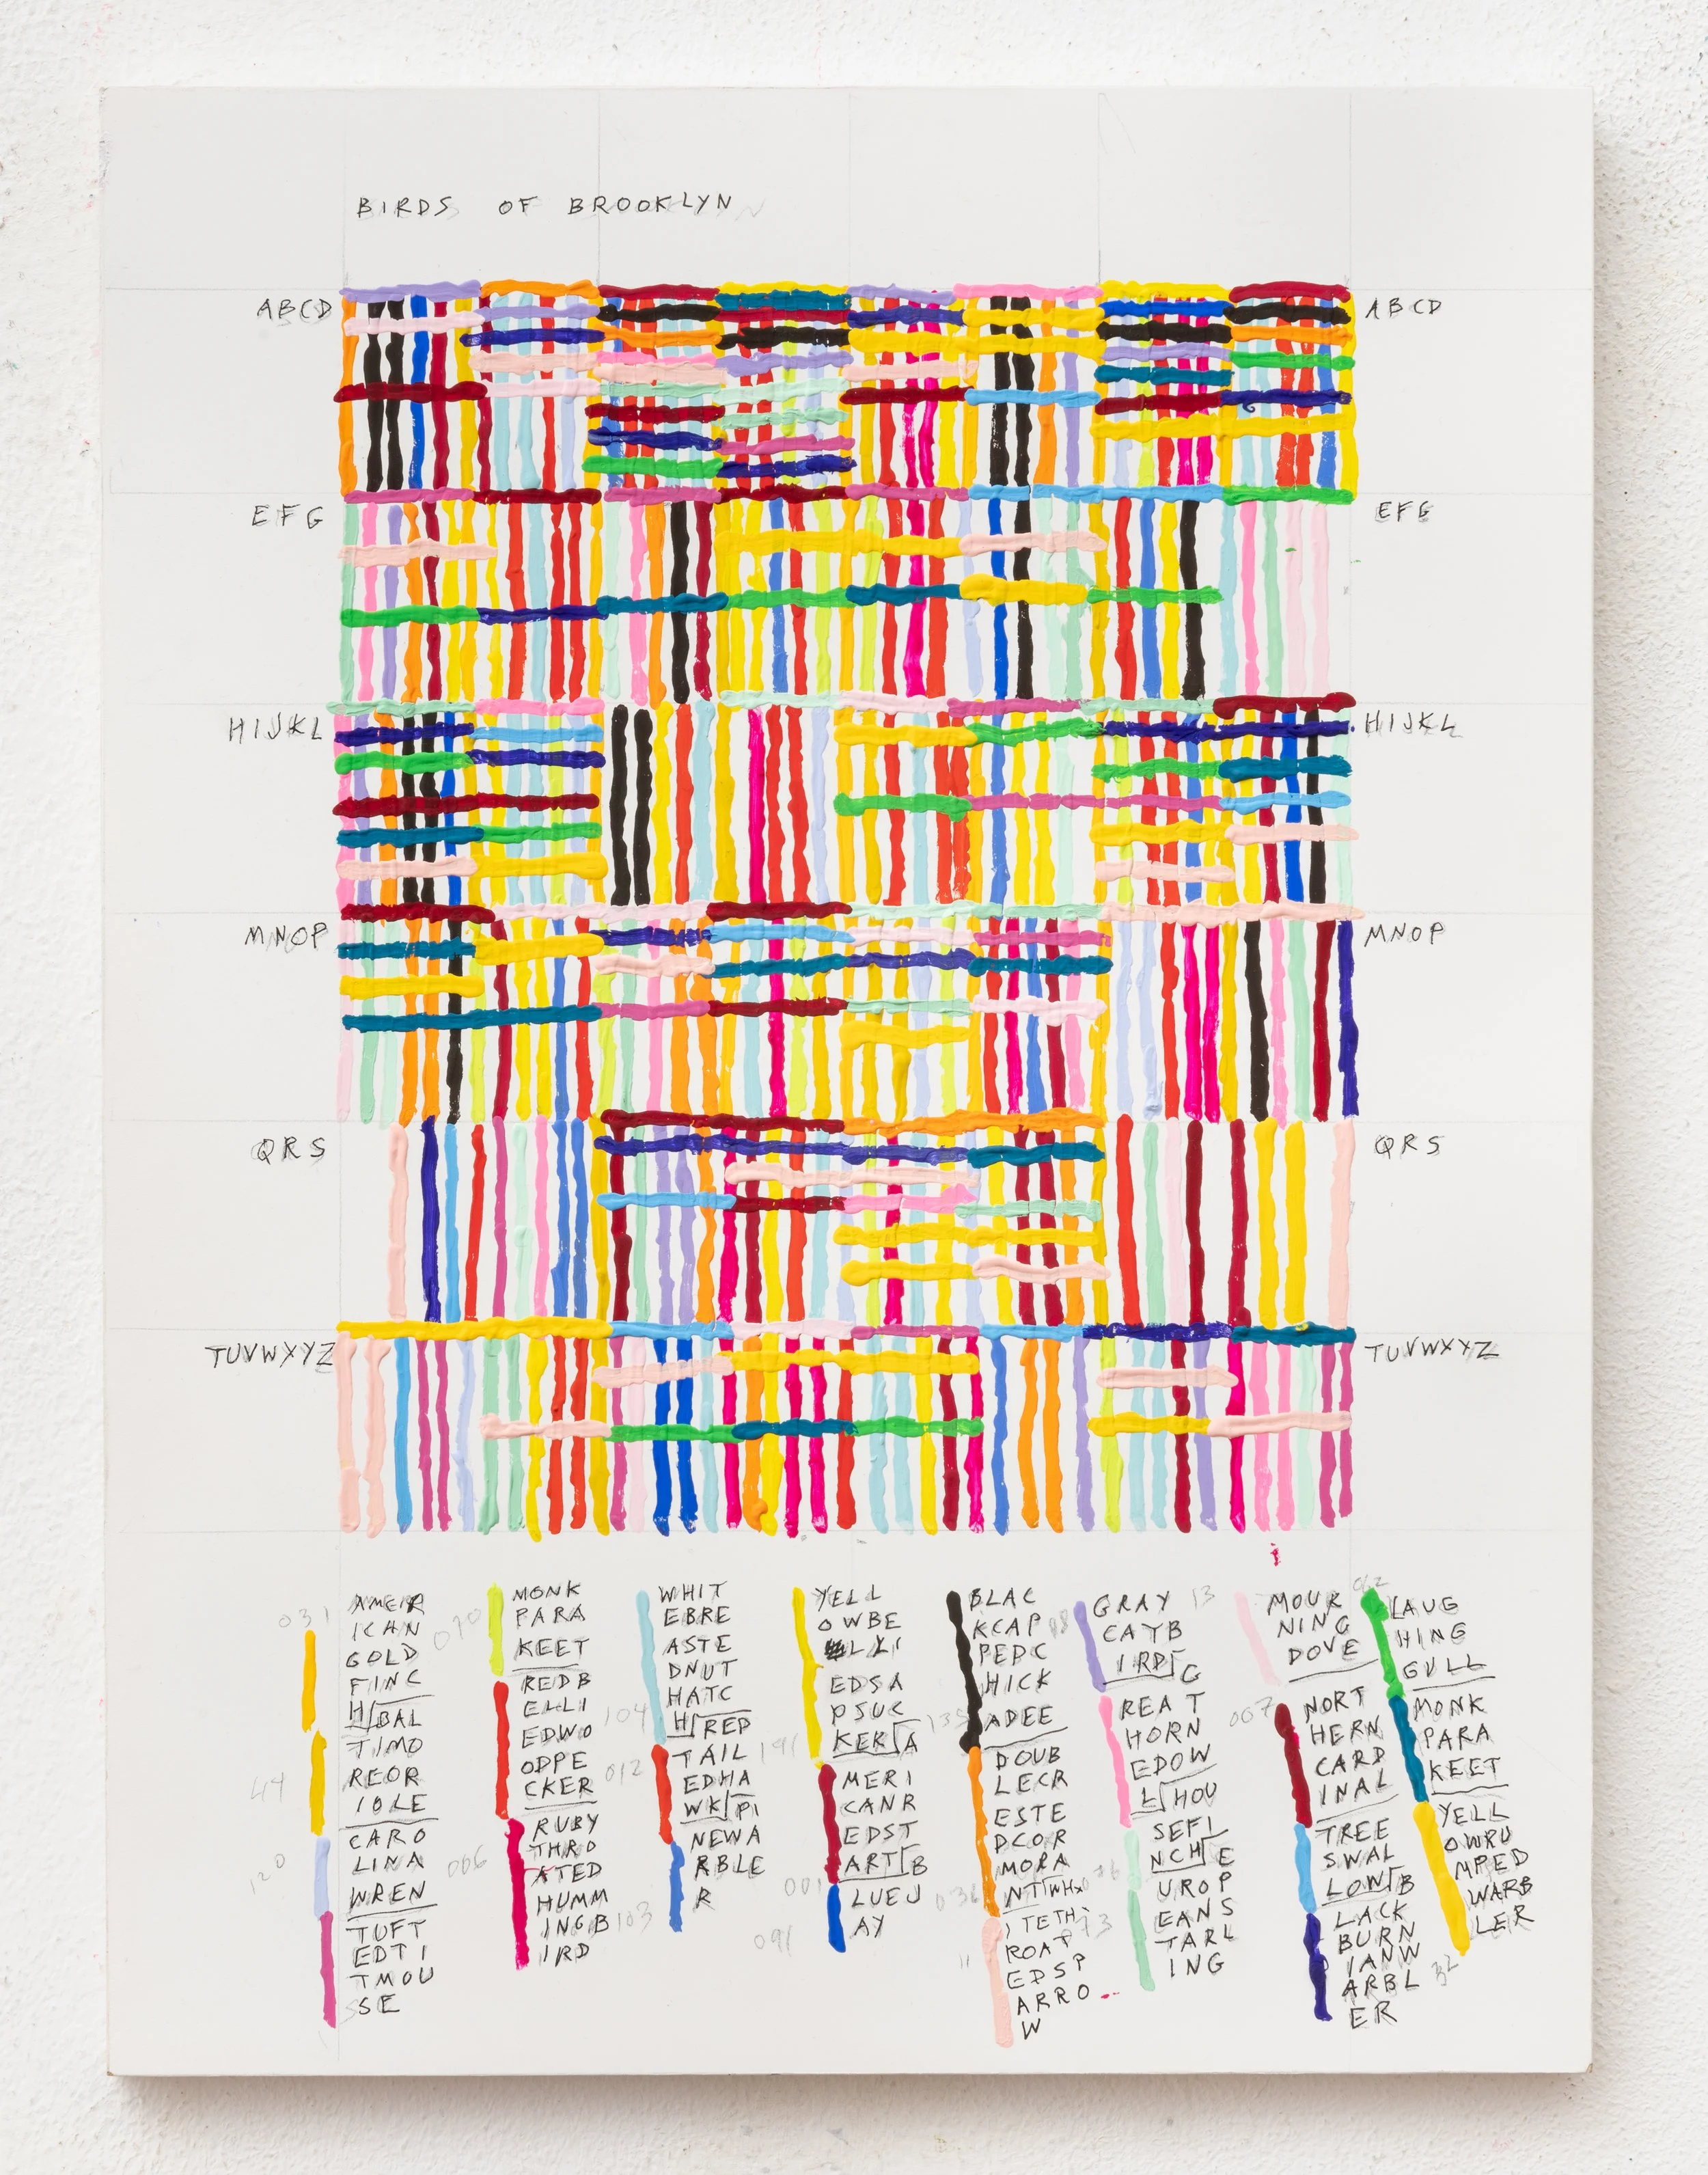 BIRDS OF BROOKLYN
ABCD
ABCD
EFG
EFG
HIJKL
HIJKL
MNOP
MNOP
QRS
QRS
TUVWXYZ
TUVWXYZ
031
AMER
ICAN
GOLD
FINC
H BAL
TIMO
REOR
IOLE
CARO
LINA
WREN
TUFT
EDTI
TMOU
SE
44
120
070
MONK
PARA
KEET
REDB
ELLI
EDWO
ODPE
CKER
RUBY
THRO
ATED
HUMM
INGB
IRD
006
WHIT
EBRE
ASTE
DNUT
HATC
H RED
TAIL
EDHA
WK PI
NEWA
RBLE
R
104
012
103
YELL
OWBE
LLI
EDSA
PSUC
KER A
MERI
CANR
EDST
ART B
LUEJ
AY
191
001
091
BLAC
KCAP
PEDC
HICK
ADEE
DOUB
LECR
ESTE
DCOR
MORA
NT WH
ITETH
ROAT
EDSP
ARRO
W
036
11
GRAY
CATB
IRD G
REAT
HORN
EDOW
L HOU
SEFI
NCH E
UROP
EANS
TARL
ING
13
MOUR
NING
DOVE
NORT
HERN
CARD
INAL
TREE
SWAL
LOW B
LACK
BURN
IANW
ARBL
ER
007
LAUG
HING
GULL
MONK
PARA
KEET
YELL
OWRU
MPED
WARB
LER
32